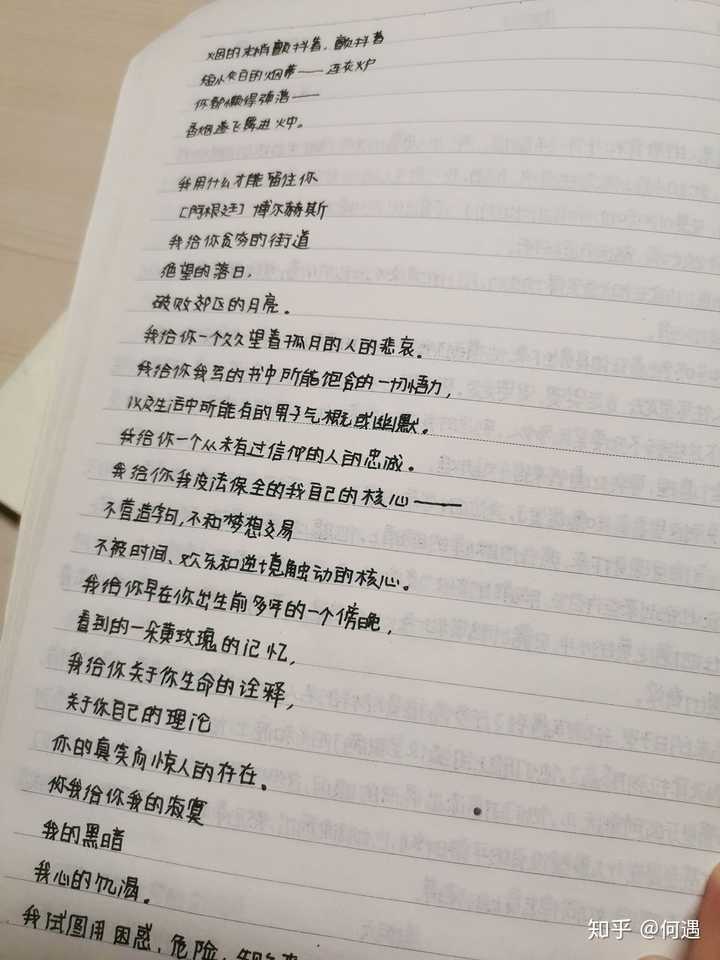 烟的末梢颤抖着，颤抖着
短小灰白的烟蒂——连灰炉
你都懒得弹落——
香烟遂飞舞进火中。
我用什么才能留住你
［阿根廷］博尔赫斯
我给你贫穷的街道
绝望的落日，
破败郊区的月亮。
我给你一个久久望着孤月的人的悲哀。
我给你我写的书中所能饱含的一切悟力，
以及生活中所能有的男子气概或幽默。
我给你一个从未有过信仰的人的忠诚。
我给你我设法保全的我自己的核心——
不营造字句，不和梦想交易
不被时间、欢乐和逆境触动的核心。
我给你早在你出生前多年的一个傍晚，
看到的一朵黄玫瑰的记忆，
我给你关于你生命的诠释，
关于你自己的理论
你的真实而惊人的存在。
你我给你我的寂寞
我的黑暗
我心的饥渴。
我试图用困惑、危险、
知乎 @何遇